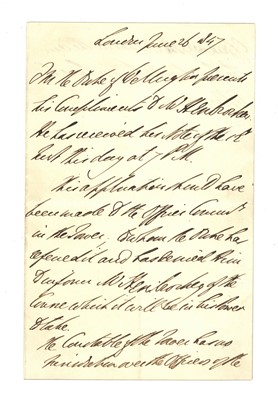 London June 26 1847
The Duke of Wellington presents
his Compliments to Mr
He has received his Note of the
Inst this day at 7 P.M.
His application should have
been made to the Officer Commg
in the Tower, To whom the Duke has
referred it and has desired him
to inform Mr of the
Course which it will be in his Power
to take.
The Constable of the Tower has no
over the Offices of the